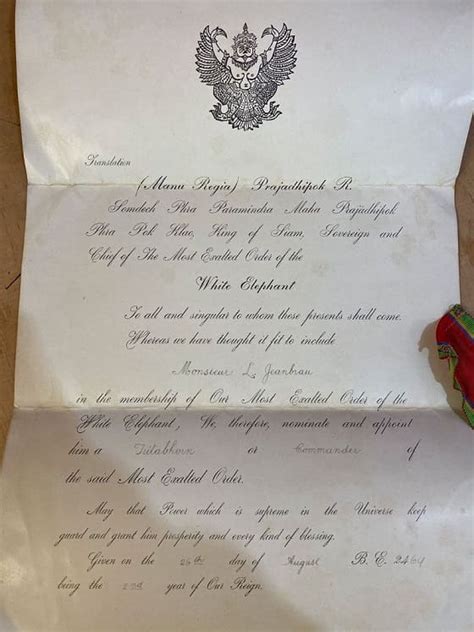 Translation
(Manu Regia) Prajadhipok R.
Somdech Phra Paramindra Maha Prajadhipok
Phra Pok Klao, King of Siam, Sovereign and
Chief of The Most Exalted Order of the
White Elephant
To all and singular to whom these presents shall come.
Whereas we have thought it fit to include
Monsieur L. Jeanbrau
in the membership of Our Most Exalted Order of the
White Elephant, We, therefore, nominate and appoint
him a Tritabhorn or Commander of
the said Most Exalted Order.
May that Power which is supreme in the Universe keep
guard and grant him prosperity and every kind of blessing.
Given on the 26th day of August B.E. 24
being the year of Our Reign.